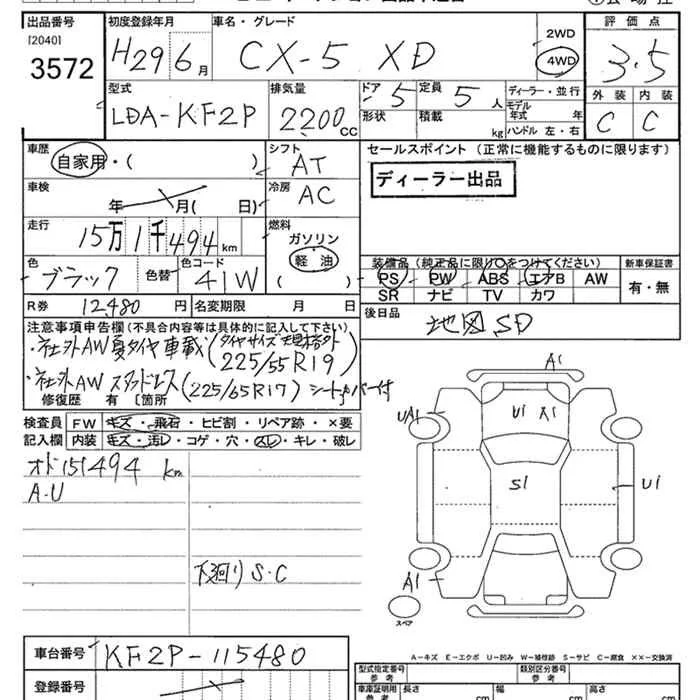 出品番号 初度登録年月 車名・グレード 2WD 評価点
[2040]
3572 H29 6月 CX-5 XD 4WD 3.5
型式 排気量 ドア 定員 ディーラー・並行 外装 内装
LDA-KF2P 2200cc 5 5人 モデル年式 年 C C
形状 積載 kg ハンドル 左・右
車歴 シフト セールスポイント (正常に機能するものに限ります)
自家用・( ) AT ディーラー出品
車検 冷房
年 月( 日) AC
走行 燃料
15万1千494km ガソリン
軽油
( )
色 色替 色コード
ブラック 41W
装備品 (純正品に限り○をつけてください) 新車保証書
PS PW ABS エアB AW 有・無
SR ナビ TV カワ
R券 12480円 名変期限 月 日 後日品
地図SD
注意事項申告欄(不具合内容等は具体的に記入して下さい)
・社外AW夏タイヤ車載(タイヤサイズ規格外 225/55R19)
・社外AWスタッドレス(225/65R17) シートカバー付
修復歴 有 〔箇所
検査員記入欄 FW キズ・飛石・ヒビ割・リペア跡・×要
内装 キズ・汚レ・コゲ・穴・スレ・キレ・破レ
オド151494km
A-U
下廻りS.C
A1
UA1 U1 A1
S1 U1
A1
スペア
A-キズ E-エクボ U-凹み W-補修跡 S-サビ C-腐食 ××-交換済
車台番号 KF2P-115480
登録番号
型式指定番号 参考 類別区分番号 参考
車庫証明用 参考 長さ cm 幅 cm 高さ cm